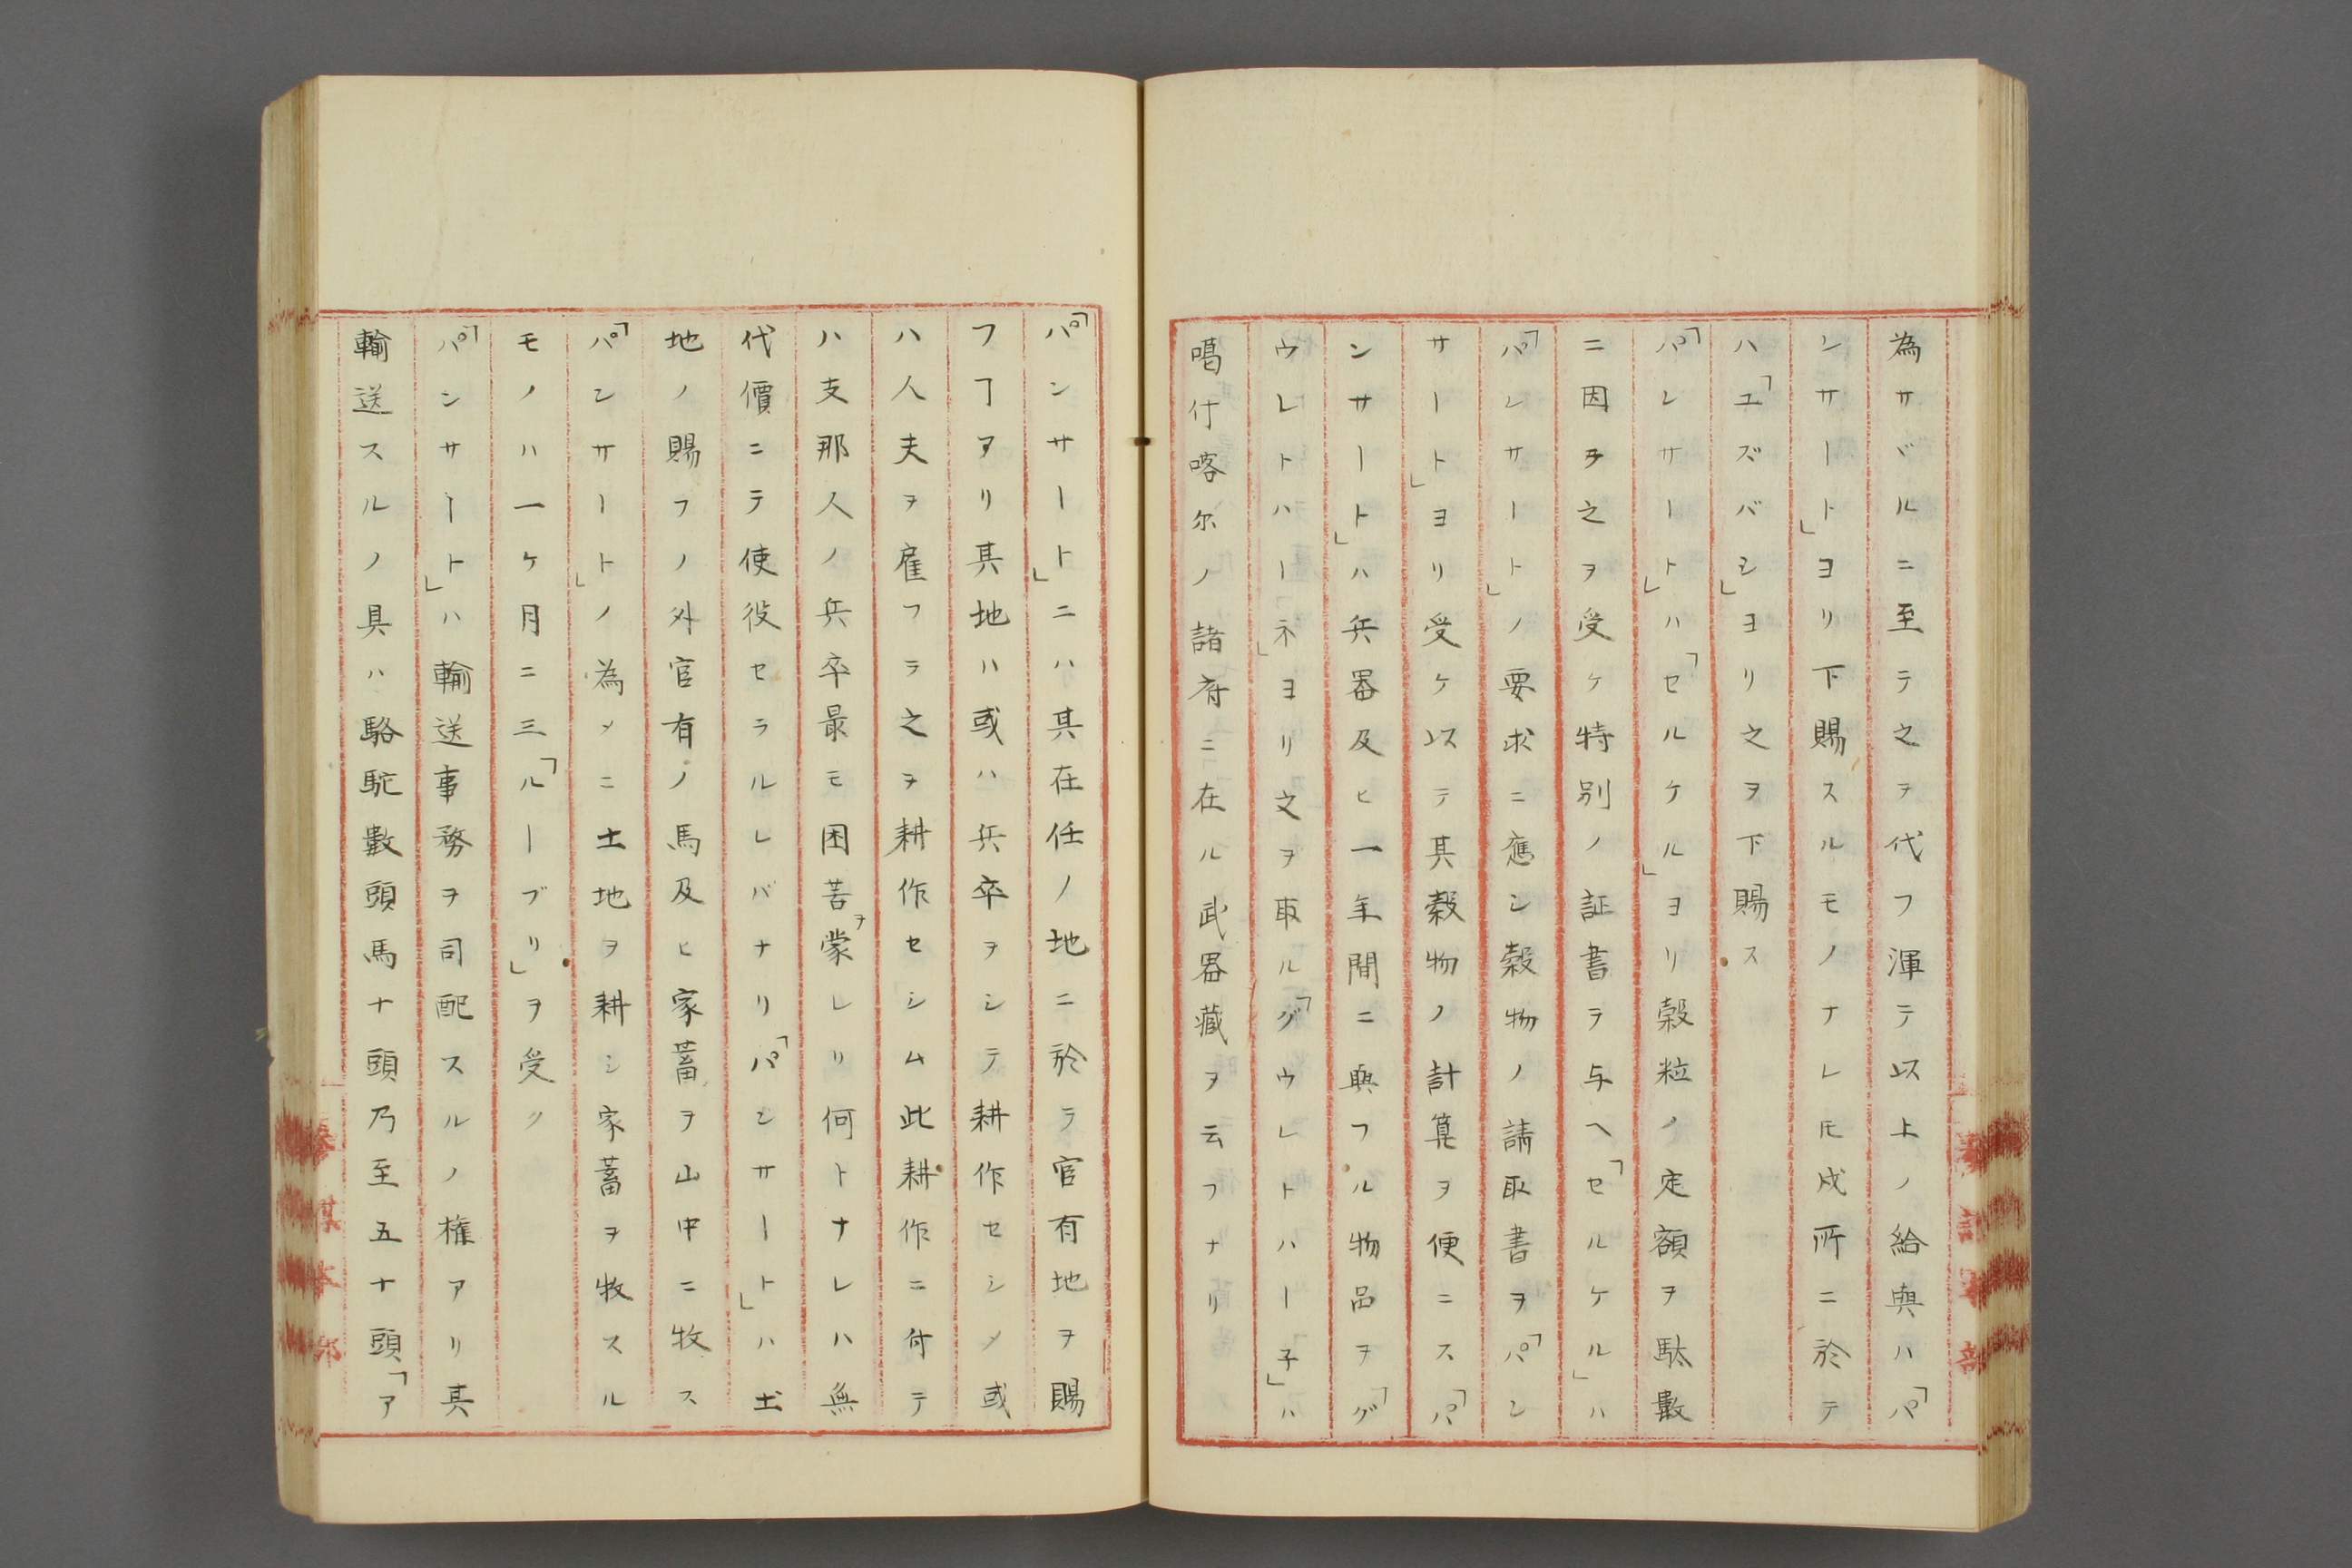 為サヾルニ至テ之ヲ代フ渾テ以上ノ給與ハ「パ
ンサート」ヨリ下賜スルモノナレ𪜈戍所ニ於テ
ハ「ユズバシ」ヨリ之ヲ下賜ス
「パンサート」ハ「セルケル」ヨリ穀粒ノ定額ヲ駄數
ニ因テ之ヲ受ケ特別ノ証書ヲ与ヘ「セルケル」ハ
「パンサート」ノ要求ニ應シ穀物ノ請取書ヲ「パン
サート」ヨリ受ケ以テ其穀物ノ計算ヲ便ニス「パ
ンサート」ハ兵器及ヒ一年間ニ與フル物品ヲ「グ
ウレトハー子」ヨリ之ヲ取ル「グウレトハー子」ハ
喝什喀尔ノ諸府ニ在ル武器藏ヲ云フナリ
「パンサート」ニハ其在任ノ地ニ於テ官有地ヲ賜
フヿアリ其地ハ或ハ兵卒ヲシテ耕作セシメ或
ハ人夫ヲ雇フテ之ヲ耕作セシム此耕作ニ付テ
ハ支那人ノ兵卒最モ困苦ヲ蒙レリ何トナレハ無
代價ニテ使役セラルレバナリ「パンサート」ハ土
地ノ賜フノ外官有ノ馬及ヒ家蓄ヲ山中ニ牧ス
「パンサート」ノ為メニ土地ヲ耕シ家蓄ヲ牧スル
モノハ一ケ月ニ三「ルーブリ」ヲ受ク
「パンサート」ハ輸送事務ヲ司配スルノ権アリ其
輸送スルノ具ハ駱駝數頭馬十頭乃至五十頭「ア
參謀本部